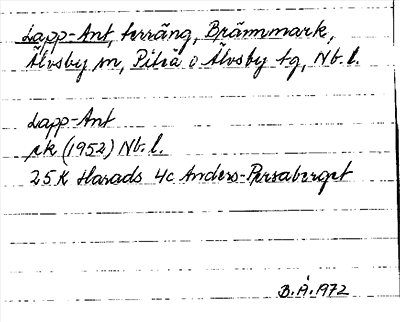 Lapp-Ant, terräng, Brännmark,
Älvsby sn, Piteå o Älvsby tg, Nb.l.
Lapp-Ant
rk (1952) Nb.l.
25K Harads 4c Anders-Persaberget
B.Å.1972